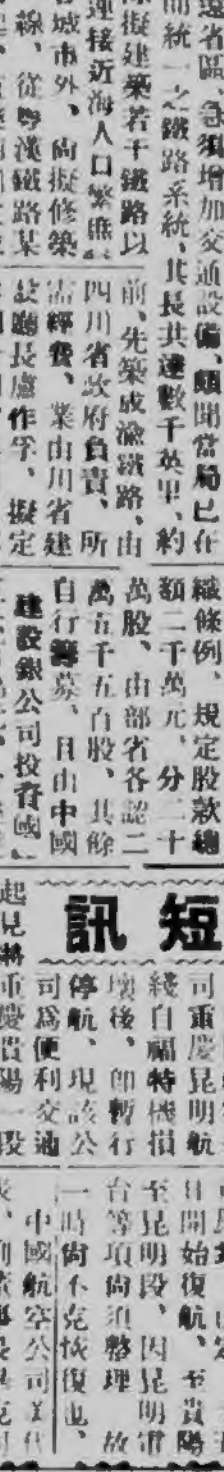 遠省區、急須增加交通設備、頗聞當局已在
間統一之鐵路系統、其長共達數千英里、約
擬建築若干鐵路以
連接近海人口繁
各城市外、尙擬修築
線、從粵漢鐵路某
前、先築成渝鐵路、由
四川省政府負責、所
需經費、業由川省建
設廳長盧作孚、擬定
織條例、規定股款總
額二千萬元、分二十
萬股、由部省各認二
萬五千五百股、其餘
自行籌募、且由中國
建設銀公司投資國
短訊
司重慶昆明航
綫自福特機損
壞後、卽暫行
停航、現該公
司爲便利交通
起見將重慶貴陽一段
日開始復航、至貴陽
至昆明段、因昆明電
台等項尙須整理、故
一時尙不克恢復也、
中國航空公司